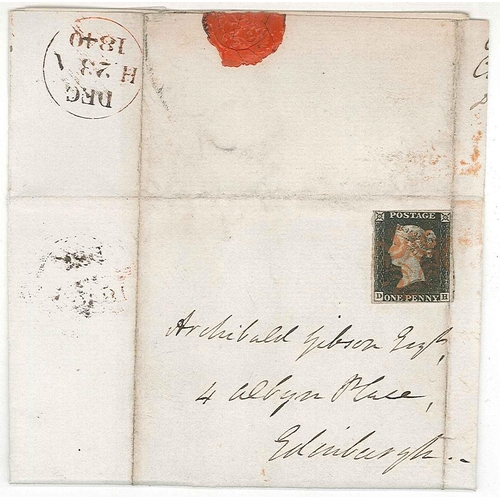 DEC
H 23 A
1840
POSTAGE
D ONE PENNY H
Archibald Gibson Esqr,
4 Albyn Place,
Edinburgh.